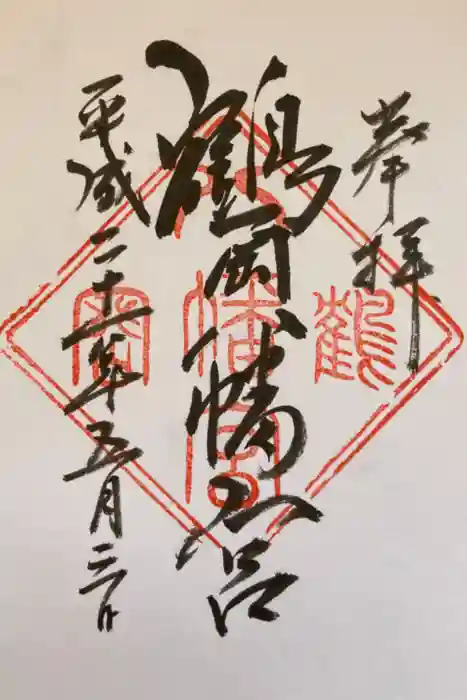 奉拝
鶴岡八幡宮
平成二十一年五月三日
鶴
幡
宮